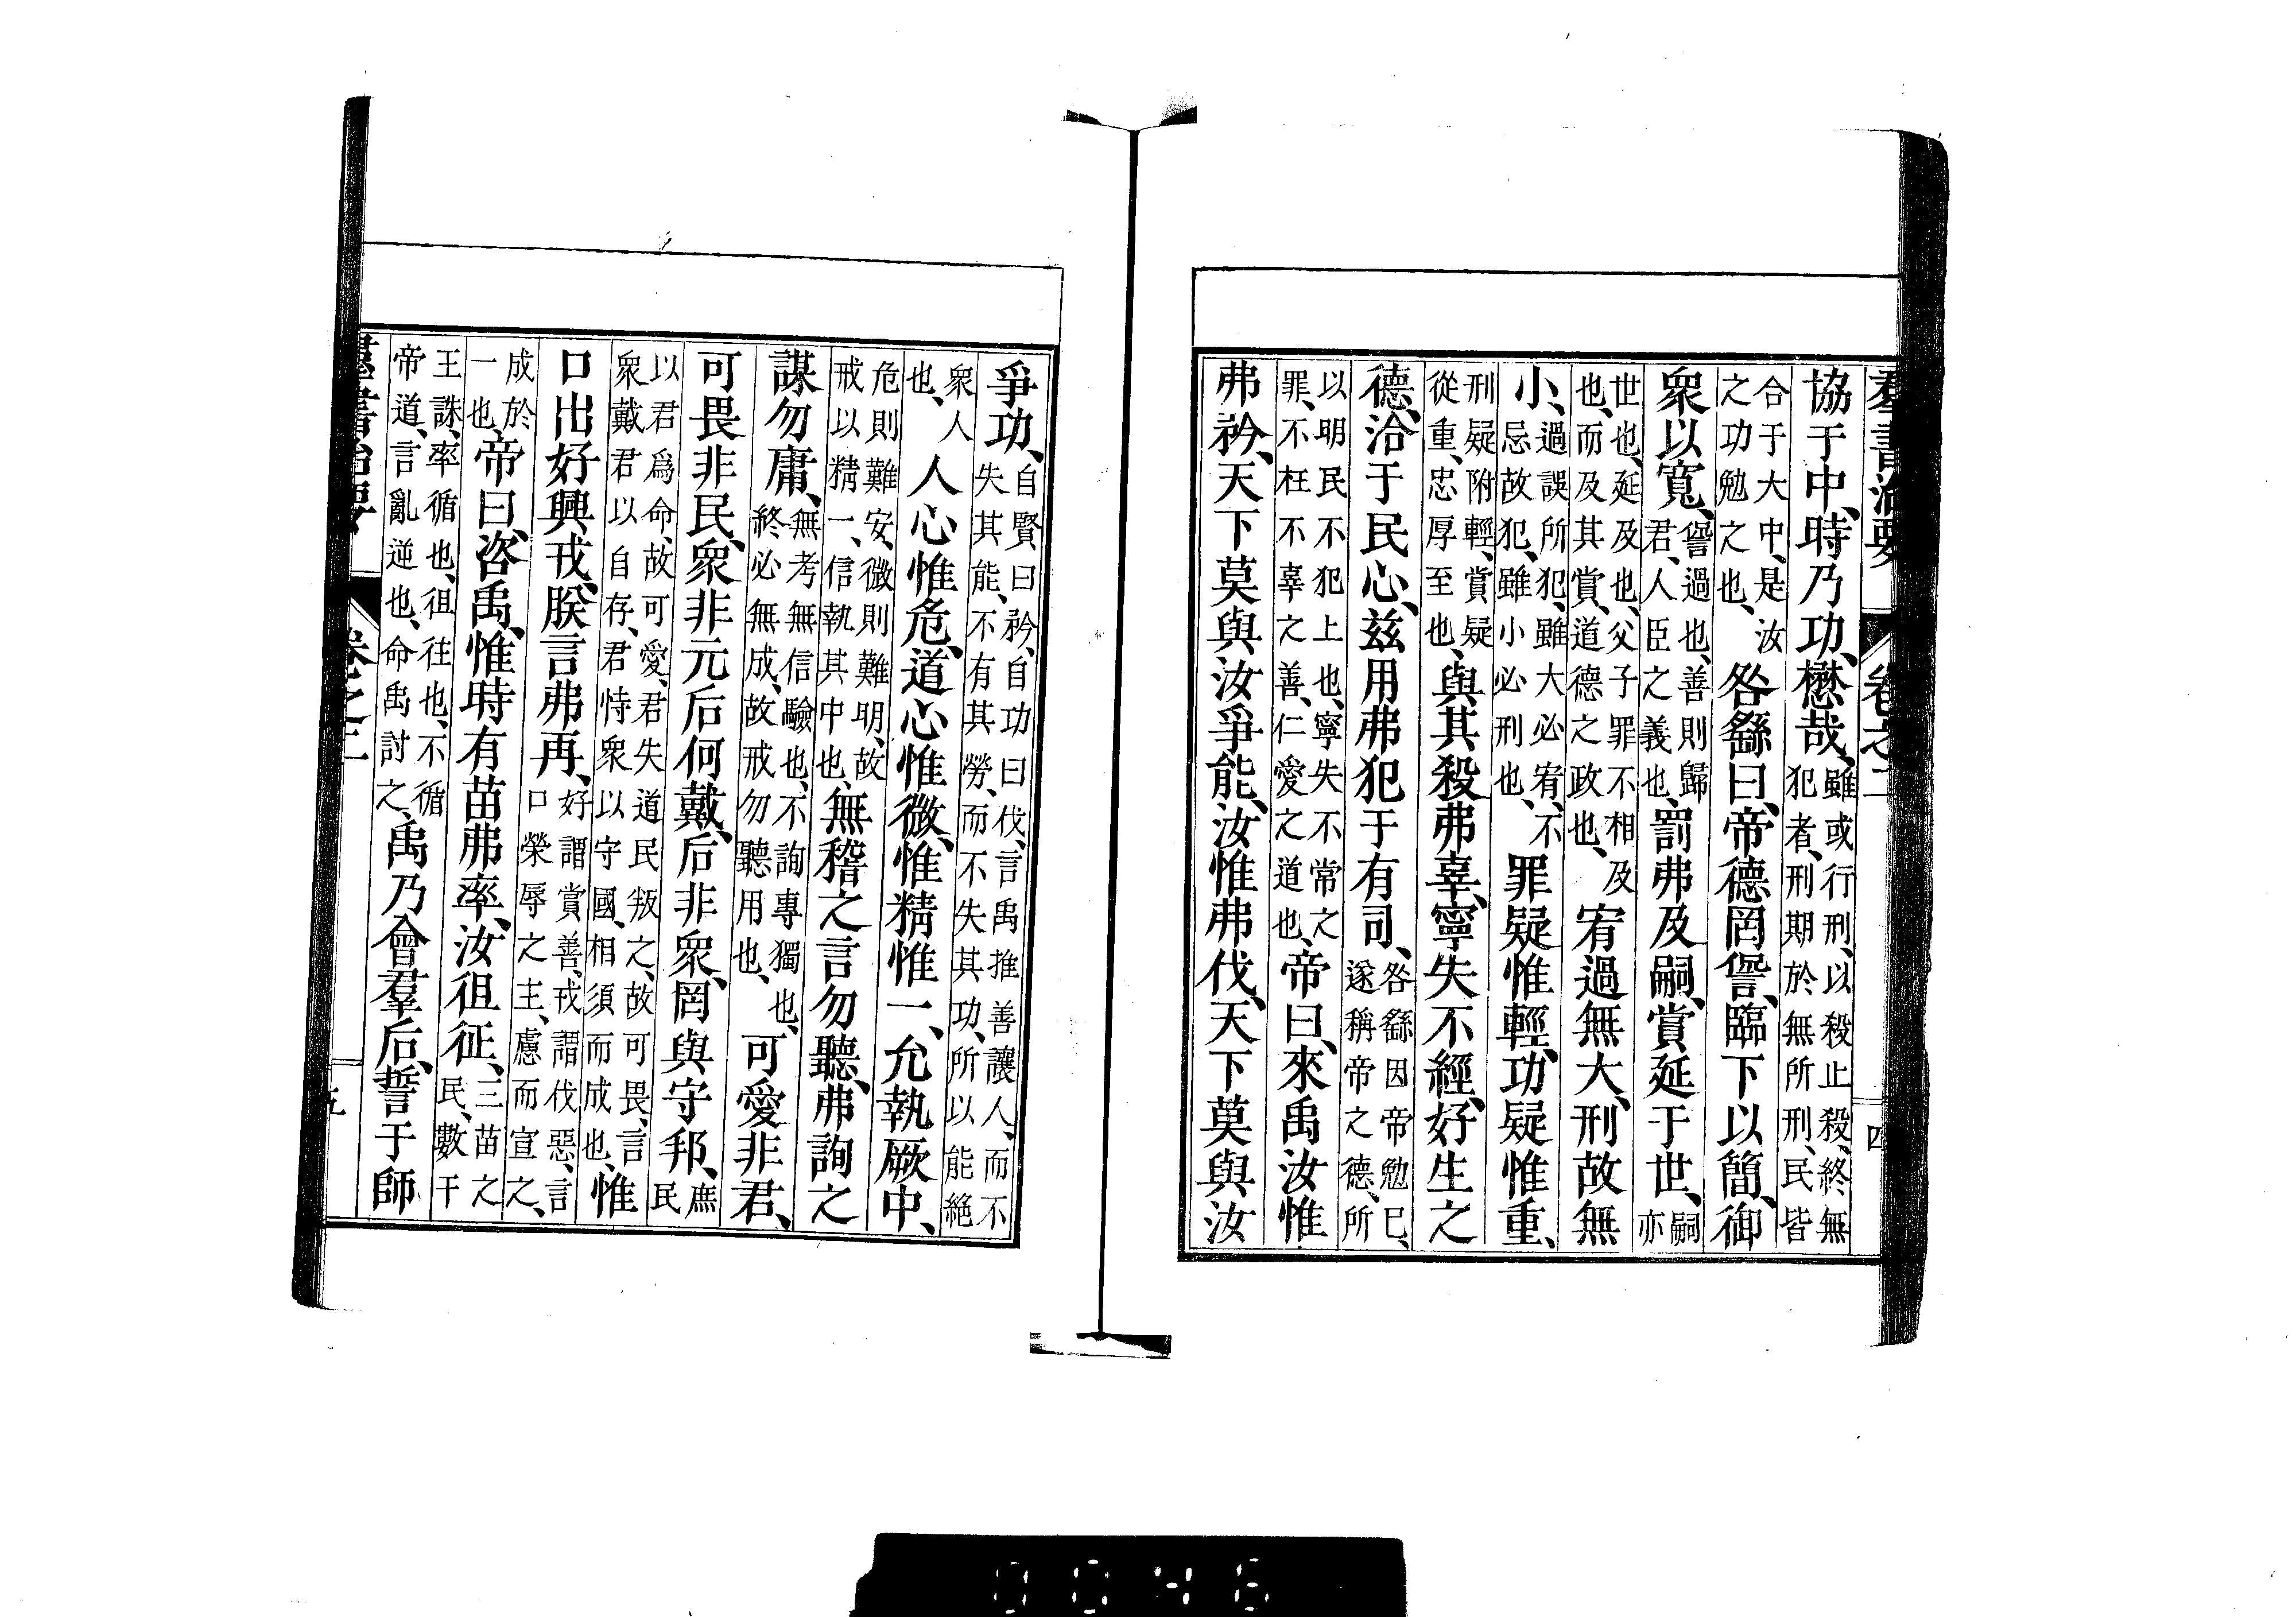 羣書治要 卷之二 四
協于中、時乃功、懋哉、雖或行刑、以殺止殺、終無犯者、刑期於無所刑、民皆
合于大中、是汝之功勉之也、咎繇曰、帝德罔諐、臨下以簡、御
衆以寬、諐過也、善則歸君、人臣之義也、罰弗及嗣、賞延于世、嗣亦
世也、延及也、父子罪不相及也、而及其賞、道德之政也、宥過無大、刑故無
小、過誤所犯、雖大必宥、不忌故犯、雖小必刑也、罪疑惟輕、功疑惟重、
刑疑附輕、賞疑從重、忠厚至也、與其殺弗辜、寧失不經、好生之
德、洽于民心、兹用弗犯于有司、咎繇因帝勉已、遂稱帝之德、所
以明民不犯上也、寧失不常之罪、不枉不辜之善、仁愛之道也、帝曰、來禹汝惟
弗矜、天下莫與汝爭能、汝惟弗伐、天下莫與汝
爭功、自賢曰矜、自功曰伐、言禹推善讓人、而不失其能、不有其勞、而不失其功、所以能絕
衆人也、人心惟危、道心惟微、惟精惟一、允執厥中、
危則難安、微則難明、故戒以精一、信執其中也、無稽之言勿聽、弗詢之
謀勿庸、無考無信驗也、不詢專獨也、終必無成、故戒勿聽用也、可愛非君、
可畏非民、衆非元后何戴、后非衆、罔與守邦、庶民
以君爲命、故可愛、君失道民叛之、故可畏、言衆戴君以自存、君恃衆以守國、相須而成也、惟
口出好興戎、朕言弗再、好謂賞善、戎謂伐惡、言口榮辱之主、慮而宣之、
成於一也、帝曰、咨禹、惟時有苗弗率、汝徂征、三苗之民、數干
王誅、率循也、徂往也、不循帝道、言亂逆也、命禹討之、禹乃會羣后、誓于師
羣書治要 卷之二 五
0046